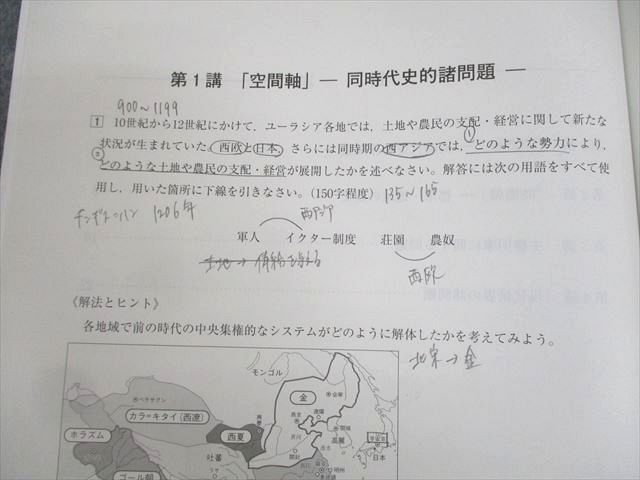 第1講 「空間軸」 ― 同時代史的諸問題 ―
900～1199
1 10世紀から12世紀にかけて,ユーラシア各地では,土地や農民の支配・経営に関して新たな
状況が生まれていた。西欧と日本,さらには同時期の西アジアでは,①どのような勢力により,
②どのような土地や農民の支配・経営が展開したかを述べなさい。解答には次の用語をすべて使
用し,用いた箇所に下線を引きなさい。(150字程度) 135～165
チンギス=ハン 1206年
西アジア
軍人 イクター制度 荘園 農奴
土地→俸給を与える
西欧
《解法とヒント》
各地域で前の時代の中央集権的なシステムがどのように解体したかを考えてみよう。
北宋→金
モンゴル
ベラサグン
カラ=キタイ(西遼)
金
会寧
遼陽
燕京
開城
高麗
ホラズム
西夏
興慶
黄河
開封
平安京
日本
吐蕃
ラサ
ゴール朝
南宋
明州